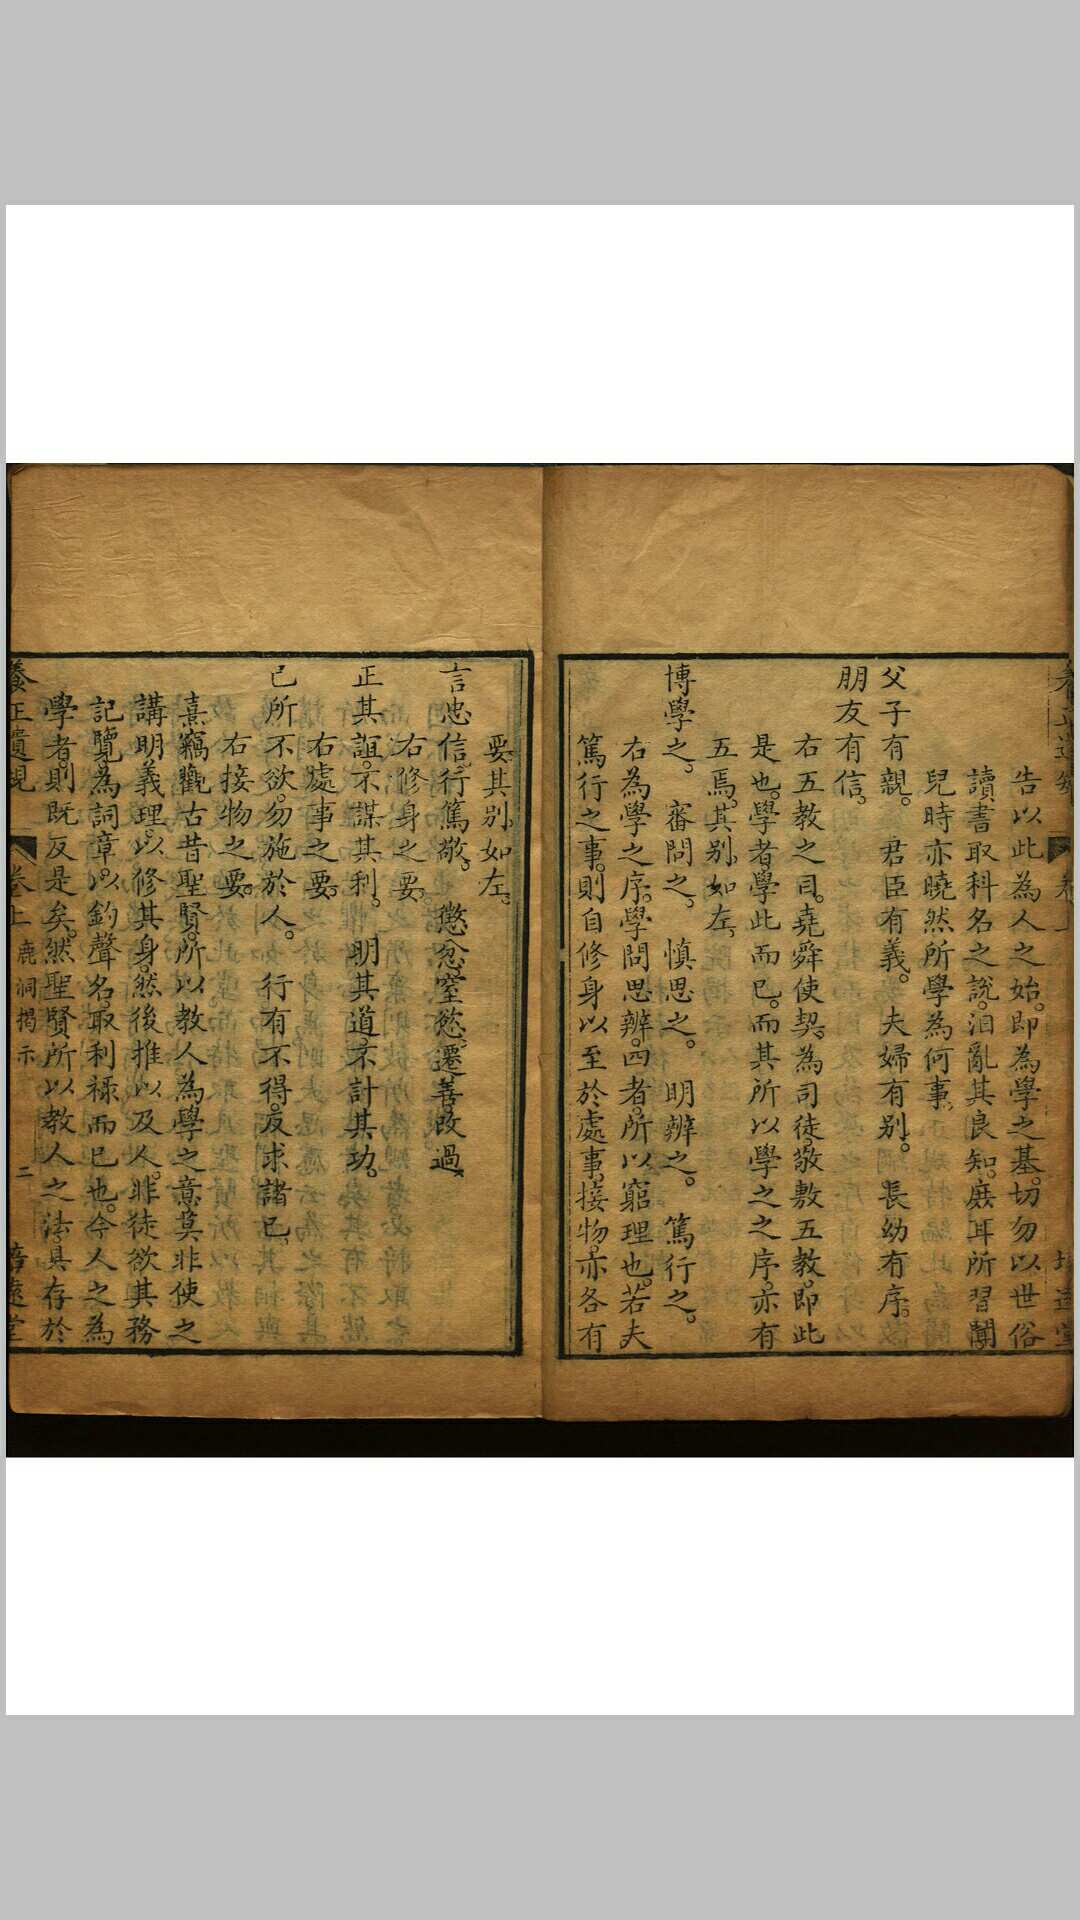 告以此為人之始。即為學之基。切勿以世俗
讀書取科名之說。汨亂其良知。庶耳所習聞
兒時亦曉然所學為何事。
父子有親。　君臣有義。　夫婦有別。　長幼有序。
朋友有信。
右五教之目。堯舜使契。為司徒。敬敷五教。即此
是也。學者學此而已。而其所以學之之序。亦有
五焉。其別。如左。
博學之。　審問之。　慎思之。　明辨之。　篤行之。
右為學之序。學問思辨。四者。所以窮理也。若夫
篤行之事。則自修身以至於處事。接物。亦各有
要。其別。如左。
言忠信。行篤敬。　懲忿窒慾。遷善改過。
右修身之要。
正其誼。不謀其利。　明其道。不計其功。
右處事之要。
己所不欲。勿施於人。　行有不得。反求諸己。
右接物之要。
熹竊觀古昔聖賢。所以教人為學之意。莫非使之
講明義理。以修其身。然後推以及人。非徒欲其務
記覽。為詞章。以釣聲名。取利祿而已也。今人之為
學者。則既反是矣。然聖賢所以教人之法。具存於
養正遺規 卷上 鹿洞揭示 二 培遠堂